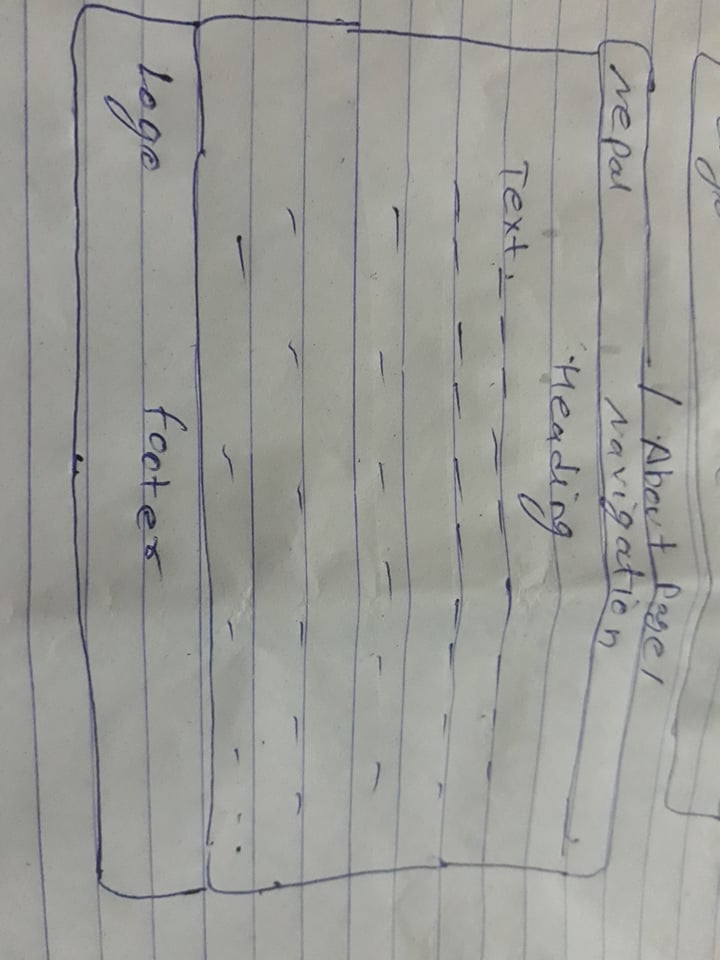 / About Page /
Nepal Navigation
Heading
Text:
Logo footer